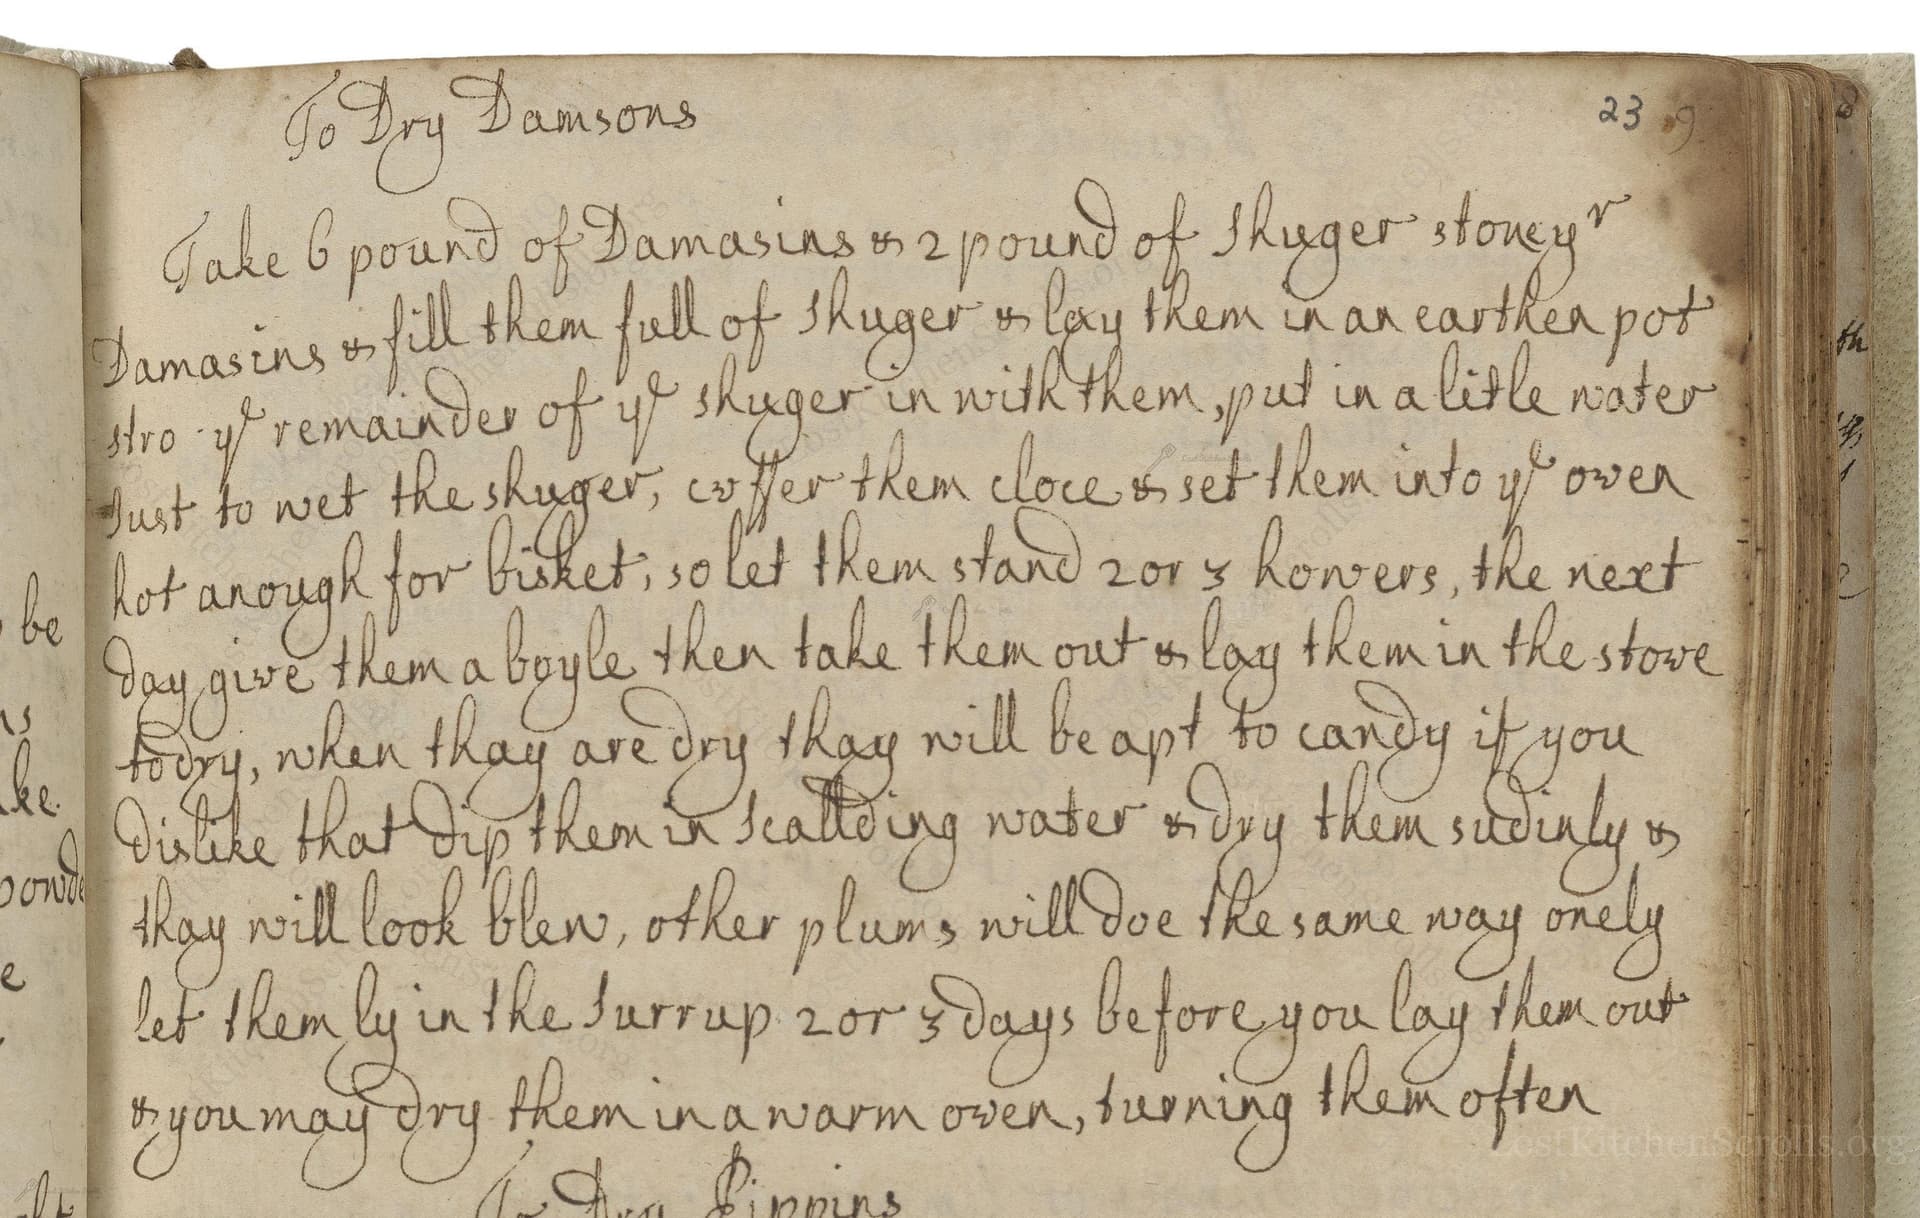 To Dry Damsons
23 9
Take 6 pound of Damasins & 2 pound of shuger stone yr
Damasins & fill them full of shuger & lay them in an earthen pot
stro ye remainder of ye shuger in with them, put in a litle water
Just to wet the shuger, cover them cloce & set them into ye oven
hot anough for bisket, so let them stand 2 or 3 howers, the next
day give them a boyle then take them out & lay them in the stove
to dry, when thay are dry thay will be apt to candy if you
dislike that dip them in scallding water & dry them sudinly &
thay will look blew, other plums will doe the same way onely
let them ly in the surrup 2 or 3 days before you lay them out
& you may dry them in a warm oven, turning them often
To Dry Pippins
be
ke
powde
e
th
LostKitchenScrolls.org